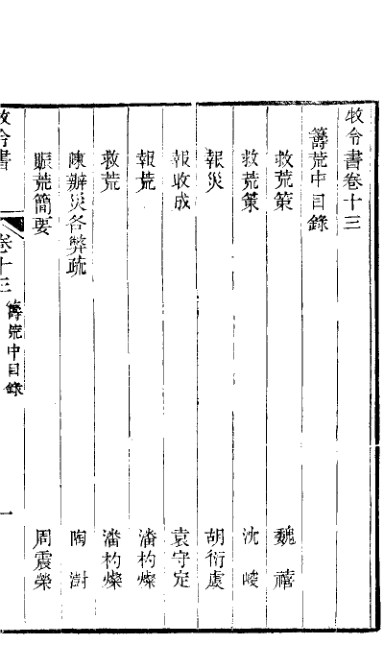 牧令書卷十三
籌荒中目錄
救荒策 魏禧
救荒策 沈峻
報災 胡衍虞
報收成 袁守定
報荒 潘杓燦
救荒 潘杓燦
陳辦災各弊疏 陶澍
賑荒簡要 周震榮
牧令書 卷十三 籌荒中目錄 一